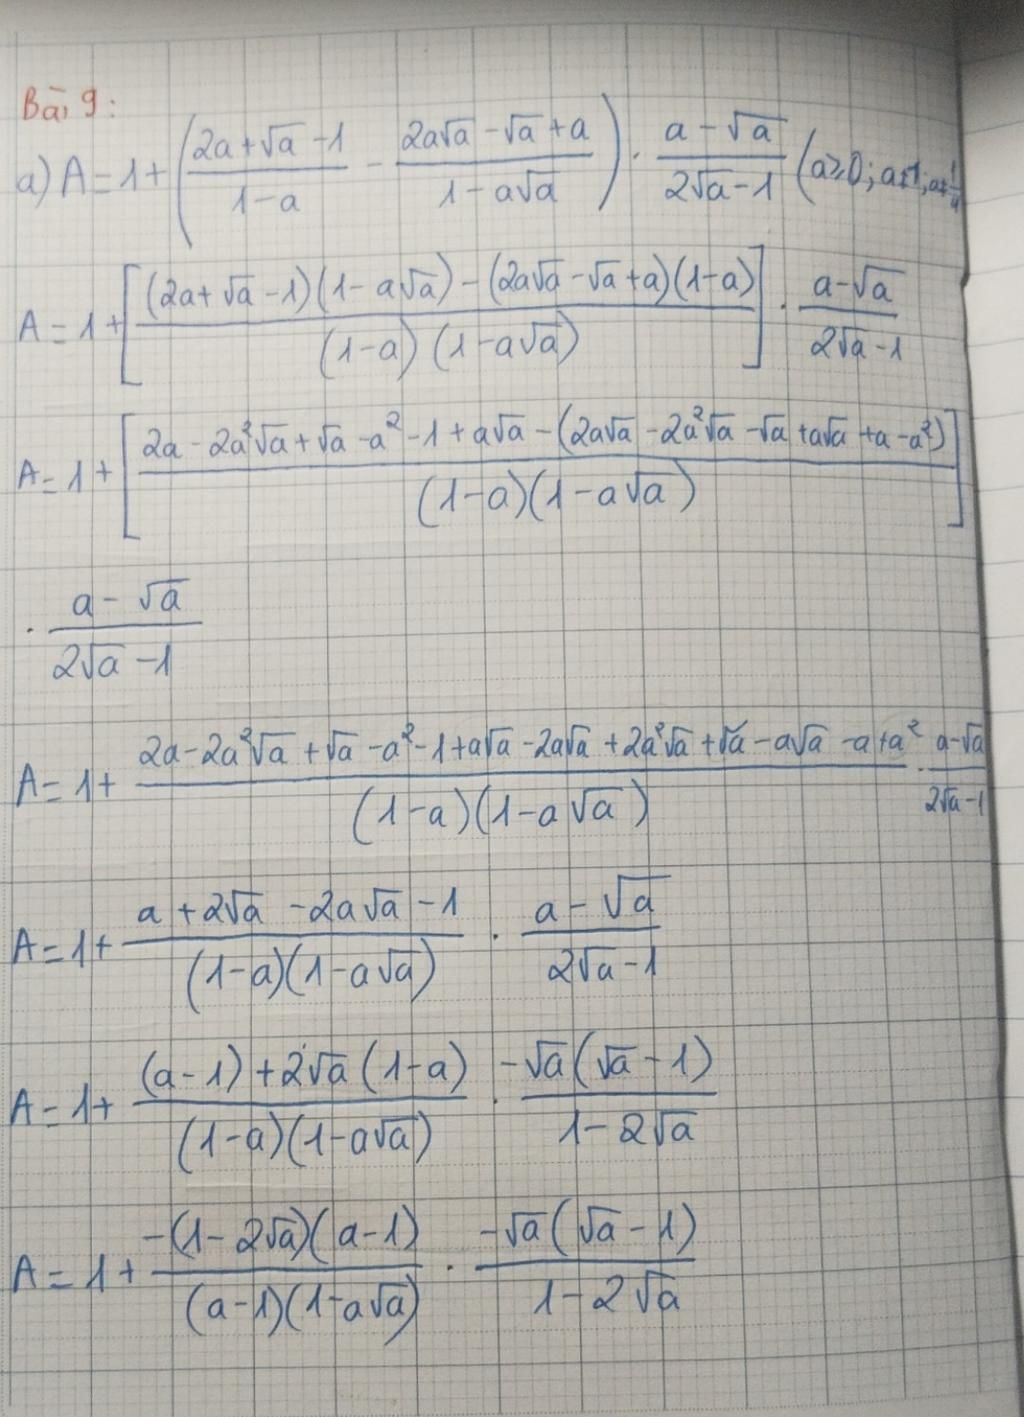 Bài 9:
a) A = 1 + ( (2a + √a - 1)/(1 - a) - (2a√a - √a + a)/(1 - a√a) ) . (a - √a)/(2√a - 1) (a ≥ 0; a ≠ 1; a ≠ 1/4
A = 1 + [ ((2a + √a - 1)(1 - a√a) - (2a√a - √a + a)(1 - a))/((1 - a)(1 - a√a)) ] . (a - √a)/(2√a - 1)
A = 1 + [ (2a - 2a²√a + √a - a² - 1 + a√a - (2a√a - 2a²√a - √a + a√a + a - a²))/((1 - a)(1 - a√a)) ]
. (a - √a)/(2√a - 1)
A = 1 + (2a - 2a²√a + √a - a² - 1 + a√a - 2a√a + 2a²√a + √a - a√a - a + a²)/((1 - a)(1 - a√a)) . (a - √a)/(2√a - 1)
A = 1 + (a + 2√a - 2a√a - 1)/((1 - a)(1 - a√a)) . (a - √a)/(2√a - 1)
A = 1 + ((a - 1) + 2√a(1 - a))/((1 - a)(1 - a√a)) . (-√a(√a - 1))/(1 - 2√a)
A = 1 + (-(1 - 2√a)(a - 1))/((a - 1)(1 - a√a)) . (-√a(√a - 1))/(1 - 2√a)